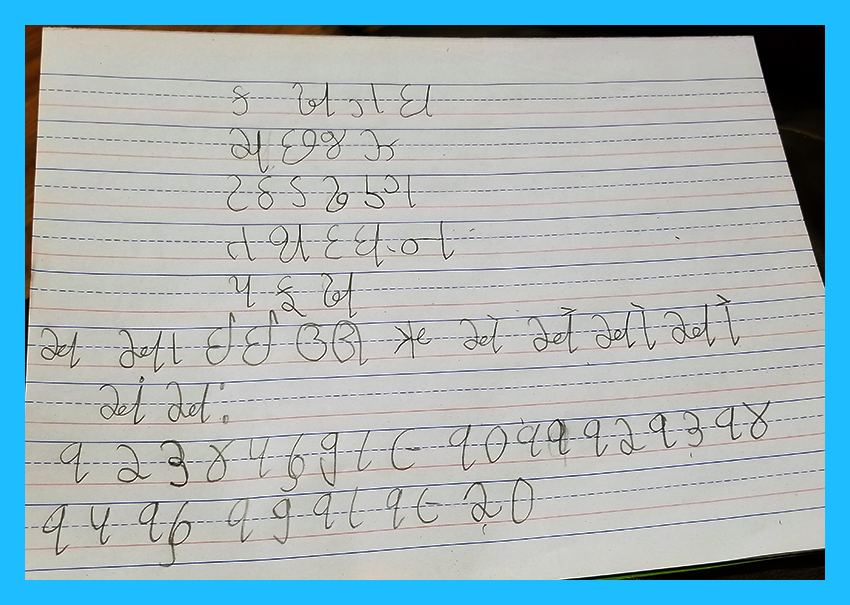 ક ખ ગ ઘ
ચ છ જ ઝ
ટ ઠ ડ ઢ ણ
ત થ દ ધ ન
પ ફ બ
અ આ ઇ ઈ ઉ ઊ ઋ એ ઐ ઓ ઔ
અં અઃ
૧ ૨ ૩ ૪ ૫ ૬ ૭ ૮ ૯ ૧૦ ૧૧ ૧૨ ૧૩ ૧૪
૧૫ ૧૬ ૧૭ ૧૮ ૧૯ ૨૦